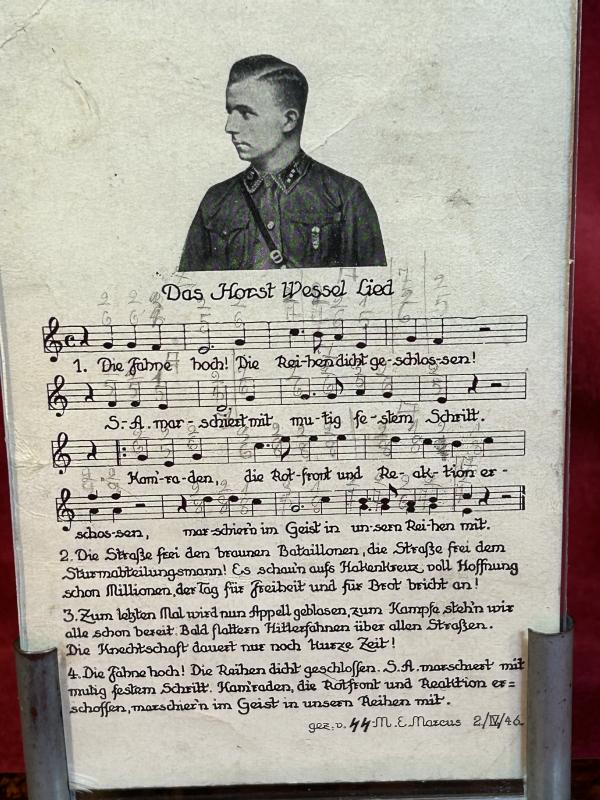 Das Horst Wessel Lied
1. Die Fahne hoch! Die Rei-hen dicht ge-schlos-sen!
S.-A. mar-schiert mit mu-tig fe-stem Schritt.
Kam'-ra-den, die Rot-front und Re-ak-tion er-
schos-sen, mar-schier'n im Geist in un-sern Rei-hen mit.
2. Die Straße frei den braunen Bataillonen, die Straße frei dem
Sturmabteilungsmann! Es schau'n aufs Hakenkreuz voll Hoffnung
schon Millionen, der Tag für Freiheit und für Brot bricht an!
3. Zum letzten Mal wird nun Appell geblasen, zum Kampfe steh'n wir
alle schon bereit. Bald flattern Hitlerfahnen über allen Straßen.
Die Knechtschaft dauert nur noch kurze Zeit!
4. Die Fahne hoch! Die Reihen dicht geschlossen. S.A. marschiert mit
mutig festem Schritt. Kam'raden, die Rotfront und Reaktion er=
schossen, marschier'n im Geist in unsern Reihen mit.
gez. v. ᛋᛋ M. E. Marcus 2/IV/46